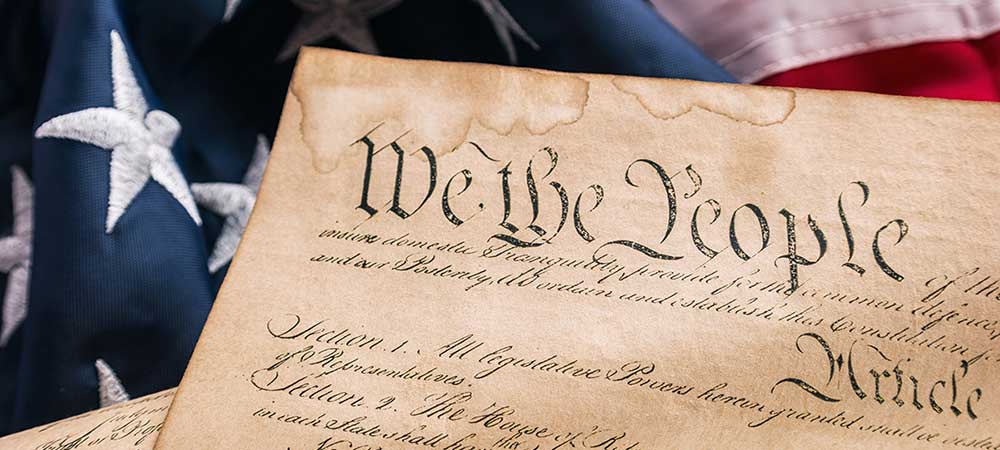 We the People of the
insure domestic Tranquility, provide for the common defence,
and our Posterity, do ordain and establish this Constitution f
Article
Section 1. All legislative Powers herein granted shall be vested
of Representatives.
Section 2. The House of R
in each State shall have